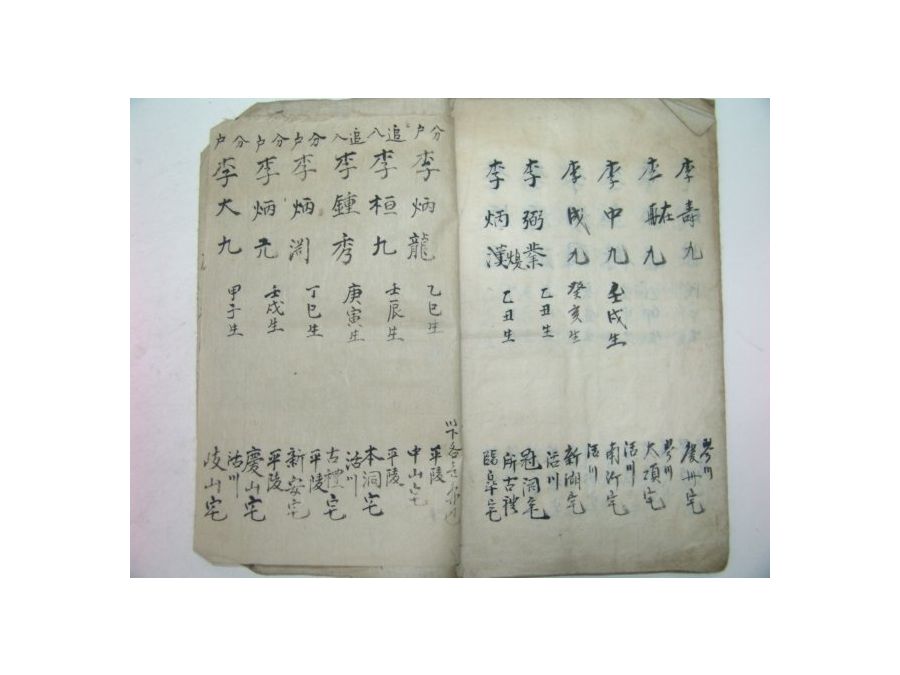 李壽九
琴川
李在九
大項宅
琴川
李中九 壬戌生
南汀宅
活川
李成九 癸亥生
新湖宅
活川
李弼業 乙丑生
冠洞宅
活川
李炳漢 乙丑生
臨皐宅
所古禮
分户 李炳龍 乙巳生
中山宅
平陵
追入 李桓九 壬辰生
本洞宅
平陵
追入 李鍾秀 庚寅生
古禮宅
活川
分户 李炳淵 丁巳生
新安宅
平陵
分户 李炳元 壬戌生
慶山宅
平陵
分户 李大九 甲子生
岐山宅
活川